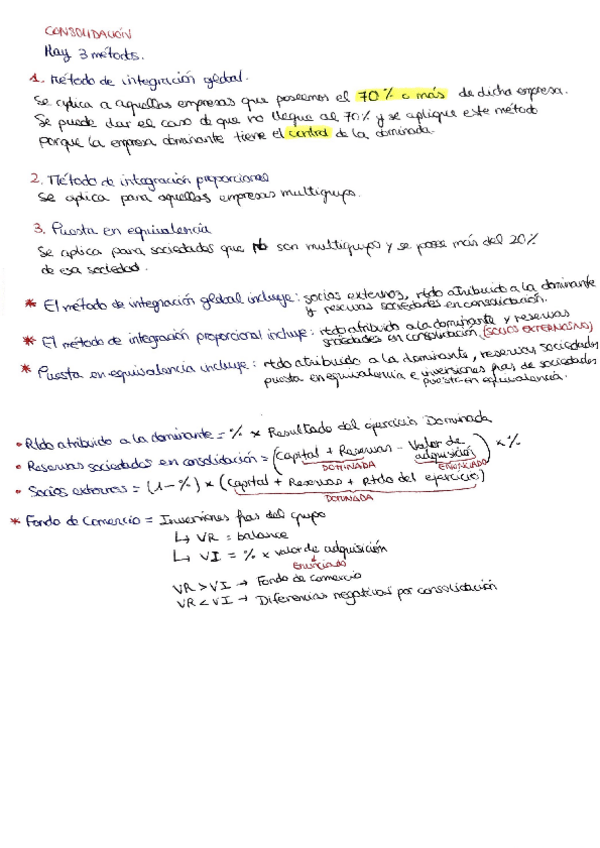 CONSOLIDACIÓN
Hay 3 métodos.
1. Método de integración global.
Se aplica a aquellas empresas que poseemos el 70% o más de dicha empresa.
Se puede dar el caso de que no llegue al 70% y se aplique este método
porque la empresa dominante tiene el control de la dominada.
2. Método de integración proporcional
Se aplica para aquellas empresas multigrupo.
3. Puesta en equivalencia
Se aplica para sociedades que no son multigrupo y se posee más del 20%
de esa sociedad.
* El método de integración global incluye: socios externos, rtdo atribuido a la dominante
y reservas sociedades en consolidación.
* El método de integración proporcional incluye: rtdo atribuido a la dominante y reservas
sociedades en consolidación (SOCIOS EXTERNOS NO)
* Puesta en equivalencia incluye: rtdo atribuido a la dominante, reservas sociedades
puesta en equivalencia e inversiones fras de sociedades
puesta en equivalencia.
• Rtdo atribuido a la dominante = % x Resultado del ejercicio Dominada
• Reservas sociedades en consolidación = (Capital + Reservas - Valor de adquisición) x %
DOMINADA ENUNCIADO
• Socios externos = (1-%) x (Capital + Reservas + Rtdo del ejercicio)
DOMINADA
* Fondo de Comercio = Inversiones fras del grupo
↳ VR = balance
↳ VI = % x valor de adquisición
ENUNCIADO
VR > VI → Fondo de comercio
VR < VI → Diferencias negativas por consolidación